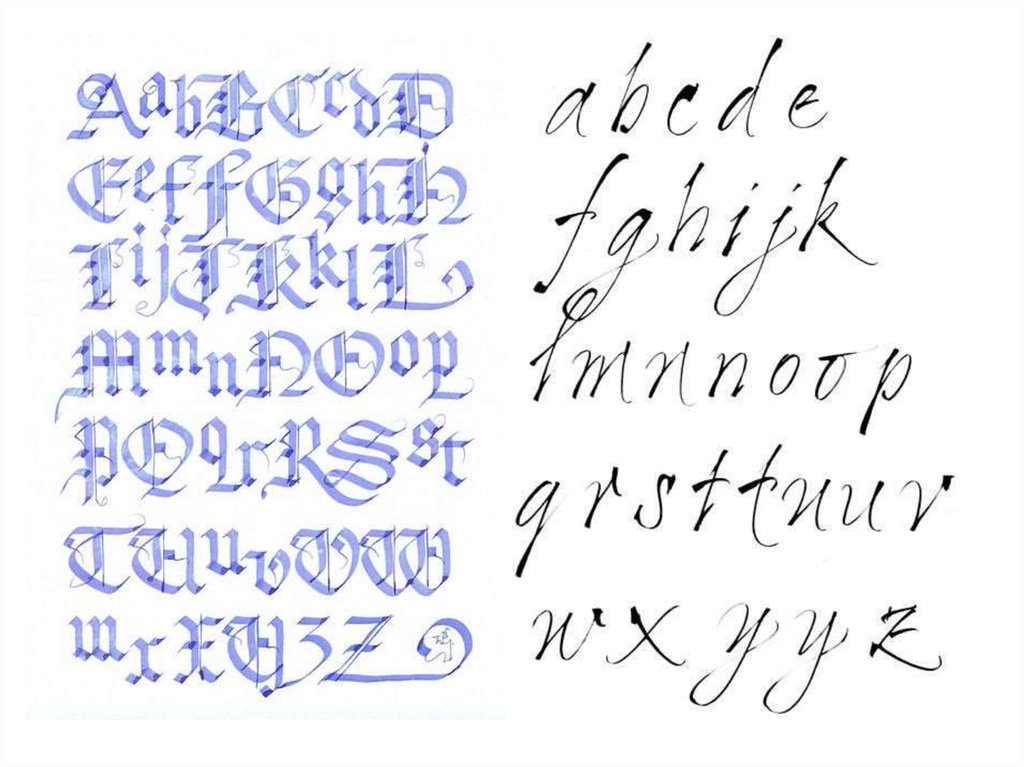 AabBCcdD
EeffGghH
IijJKklL
MmnNOop
PQqrRSst
TUuvVW
wxXYZZ
abcde
fghijk
lmnnoop
qrsttuuv
wxyyz